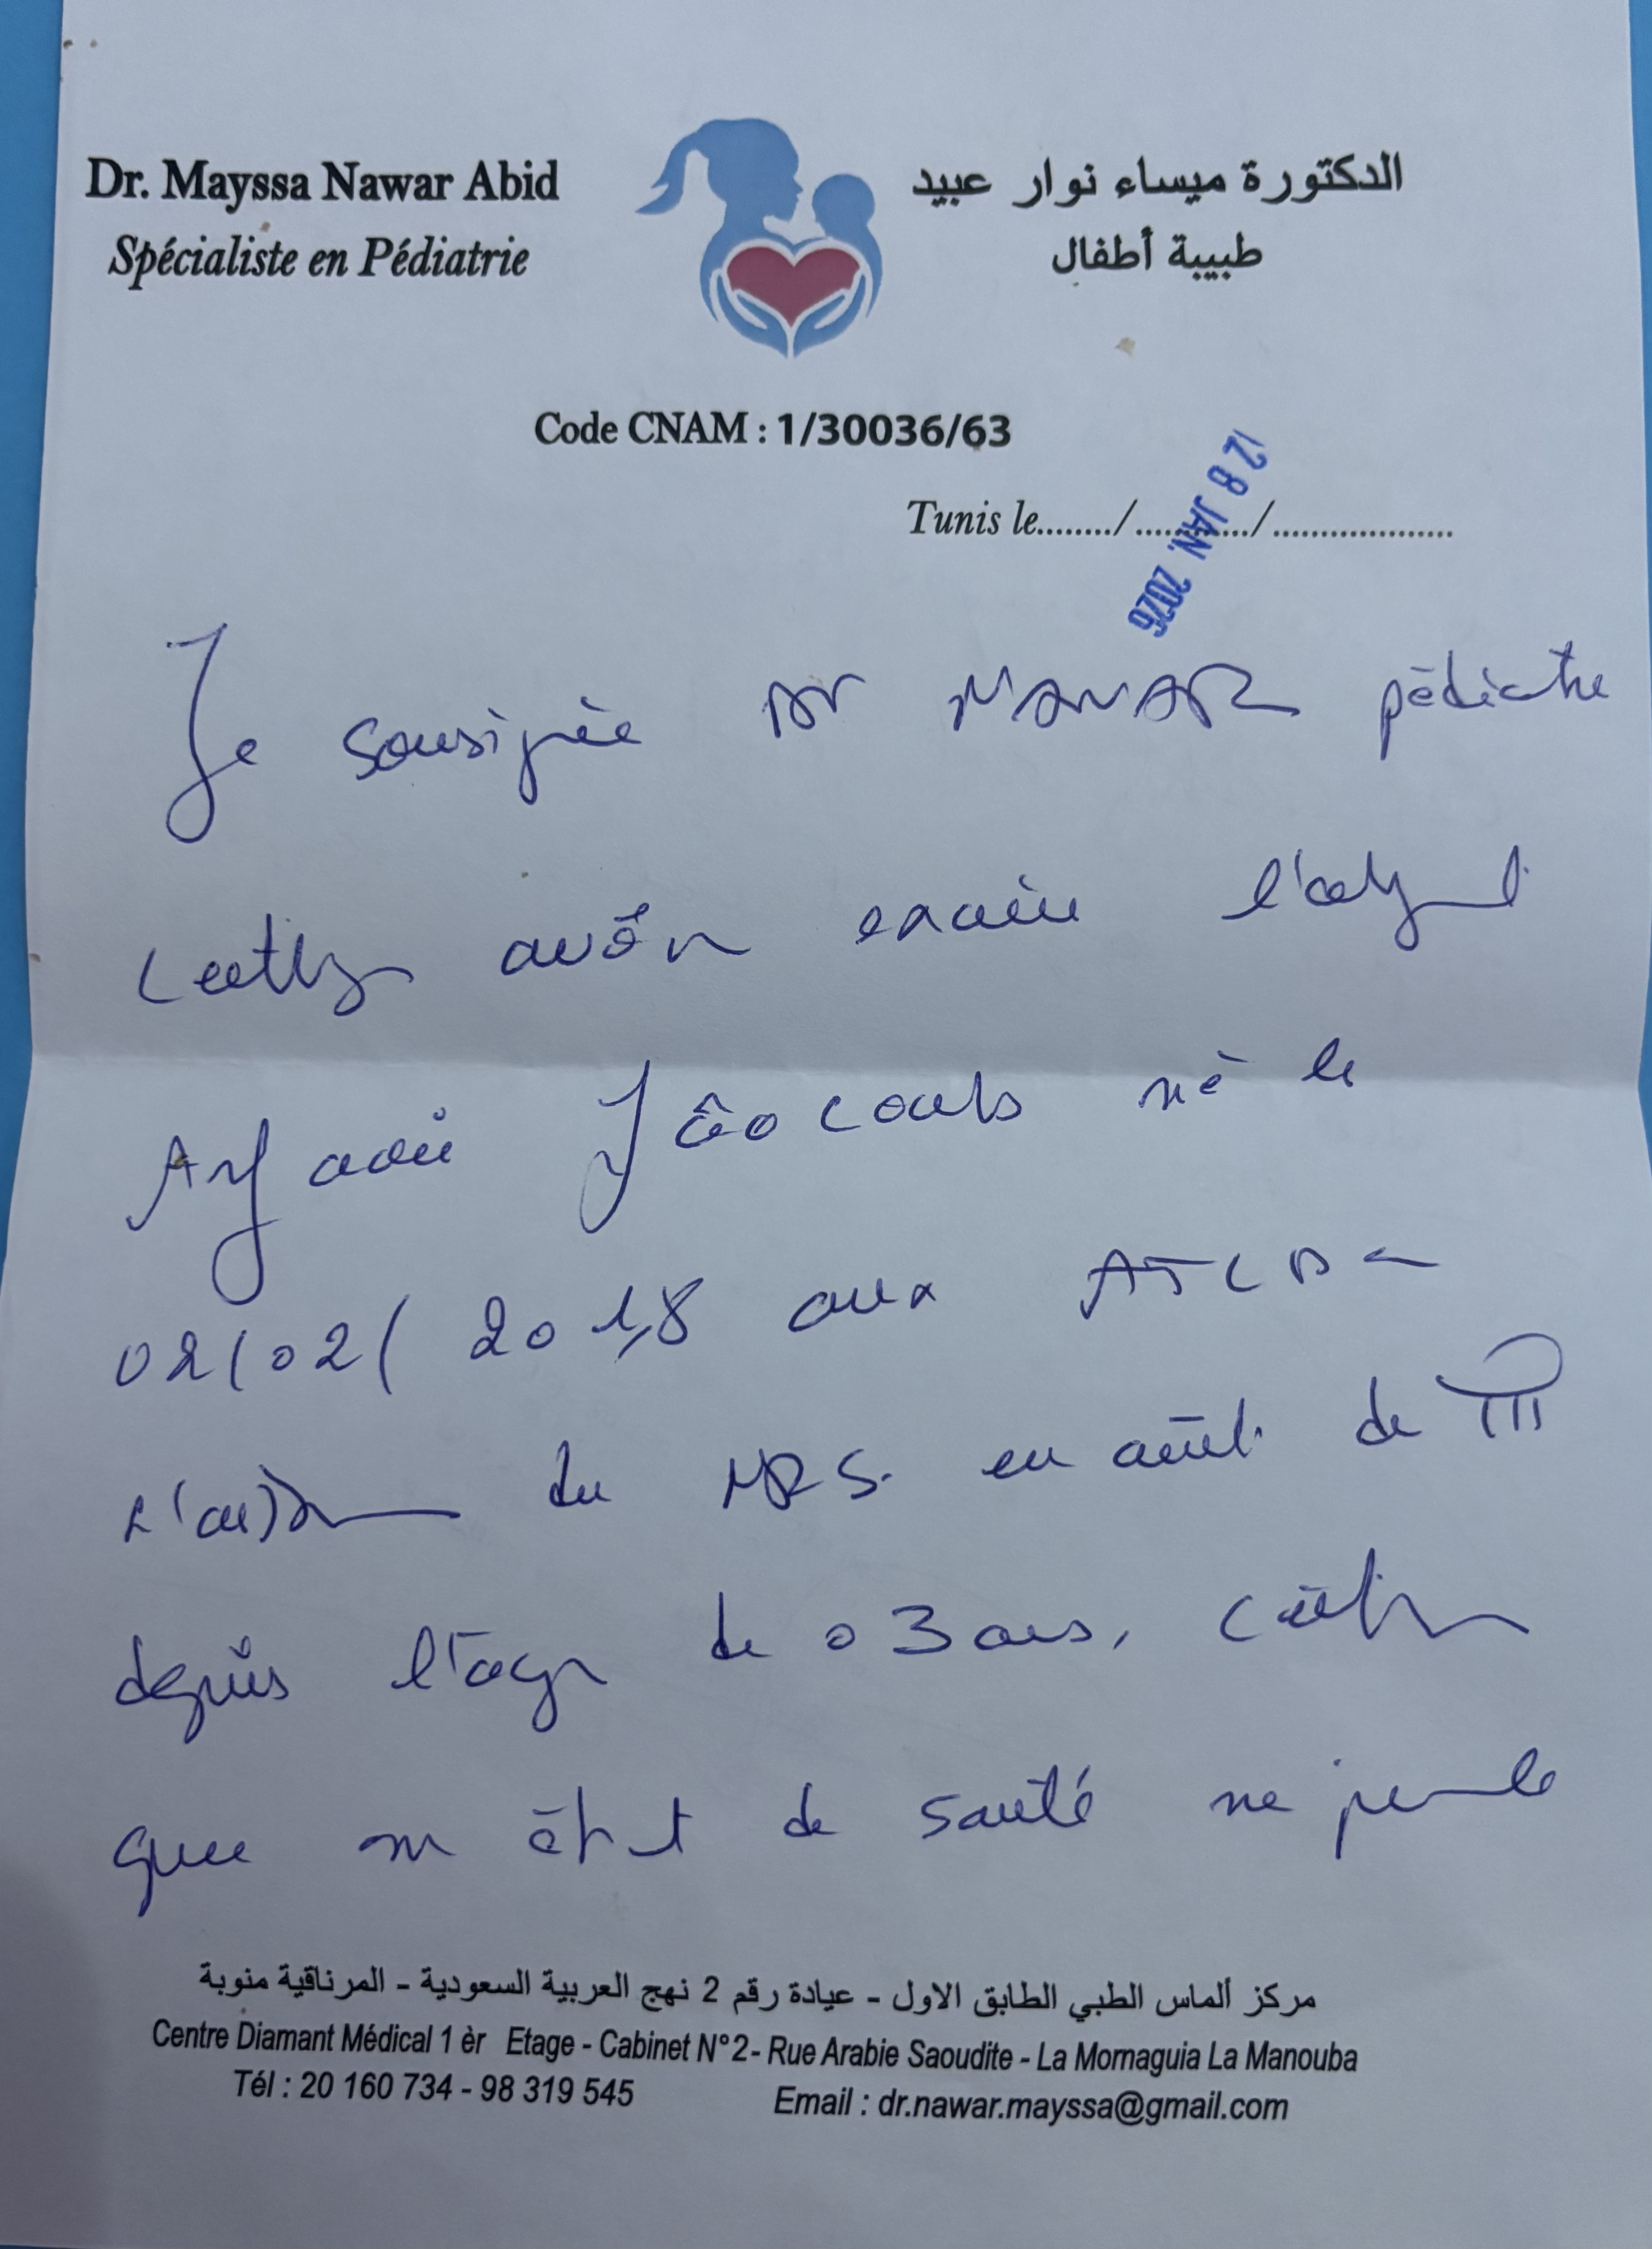 Dr. Mayssa Nawar Abid
Spécialiste en Pédiatrie
الدكتورة ميساء نوار عبيد
طبيبة أطفال
Code CNAM : 1/30036/63
Tunis le......../............/....................
28 JAN. 2026
Je sousignée Dr NAWAR pédiatre
certifie avoir examiné l'enfant
né le
02/02/2018 aux ATCD
du en arrêt de
depuis l'age de 03 ans, certifie
que son état de santé ne
مركز ألماس الطبي الطابق الاول - عيادة رقم 2 نهج العربية السعودية - المرناقية منوبة
Centre Diamant Médical 1 èr Etage - Cabinet N°2- Rue Arabie Saoudite - La Mornaguia La Manouba
Tél : 20 160 734 - 98 319 545
Email : dr.nawar.mayssa@gmail.com